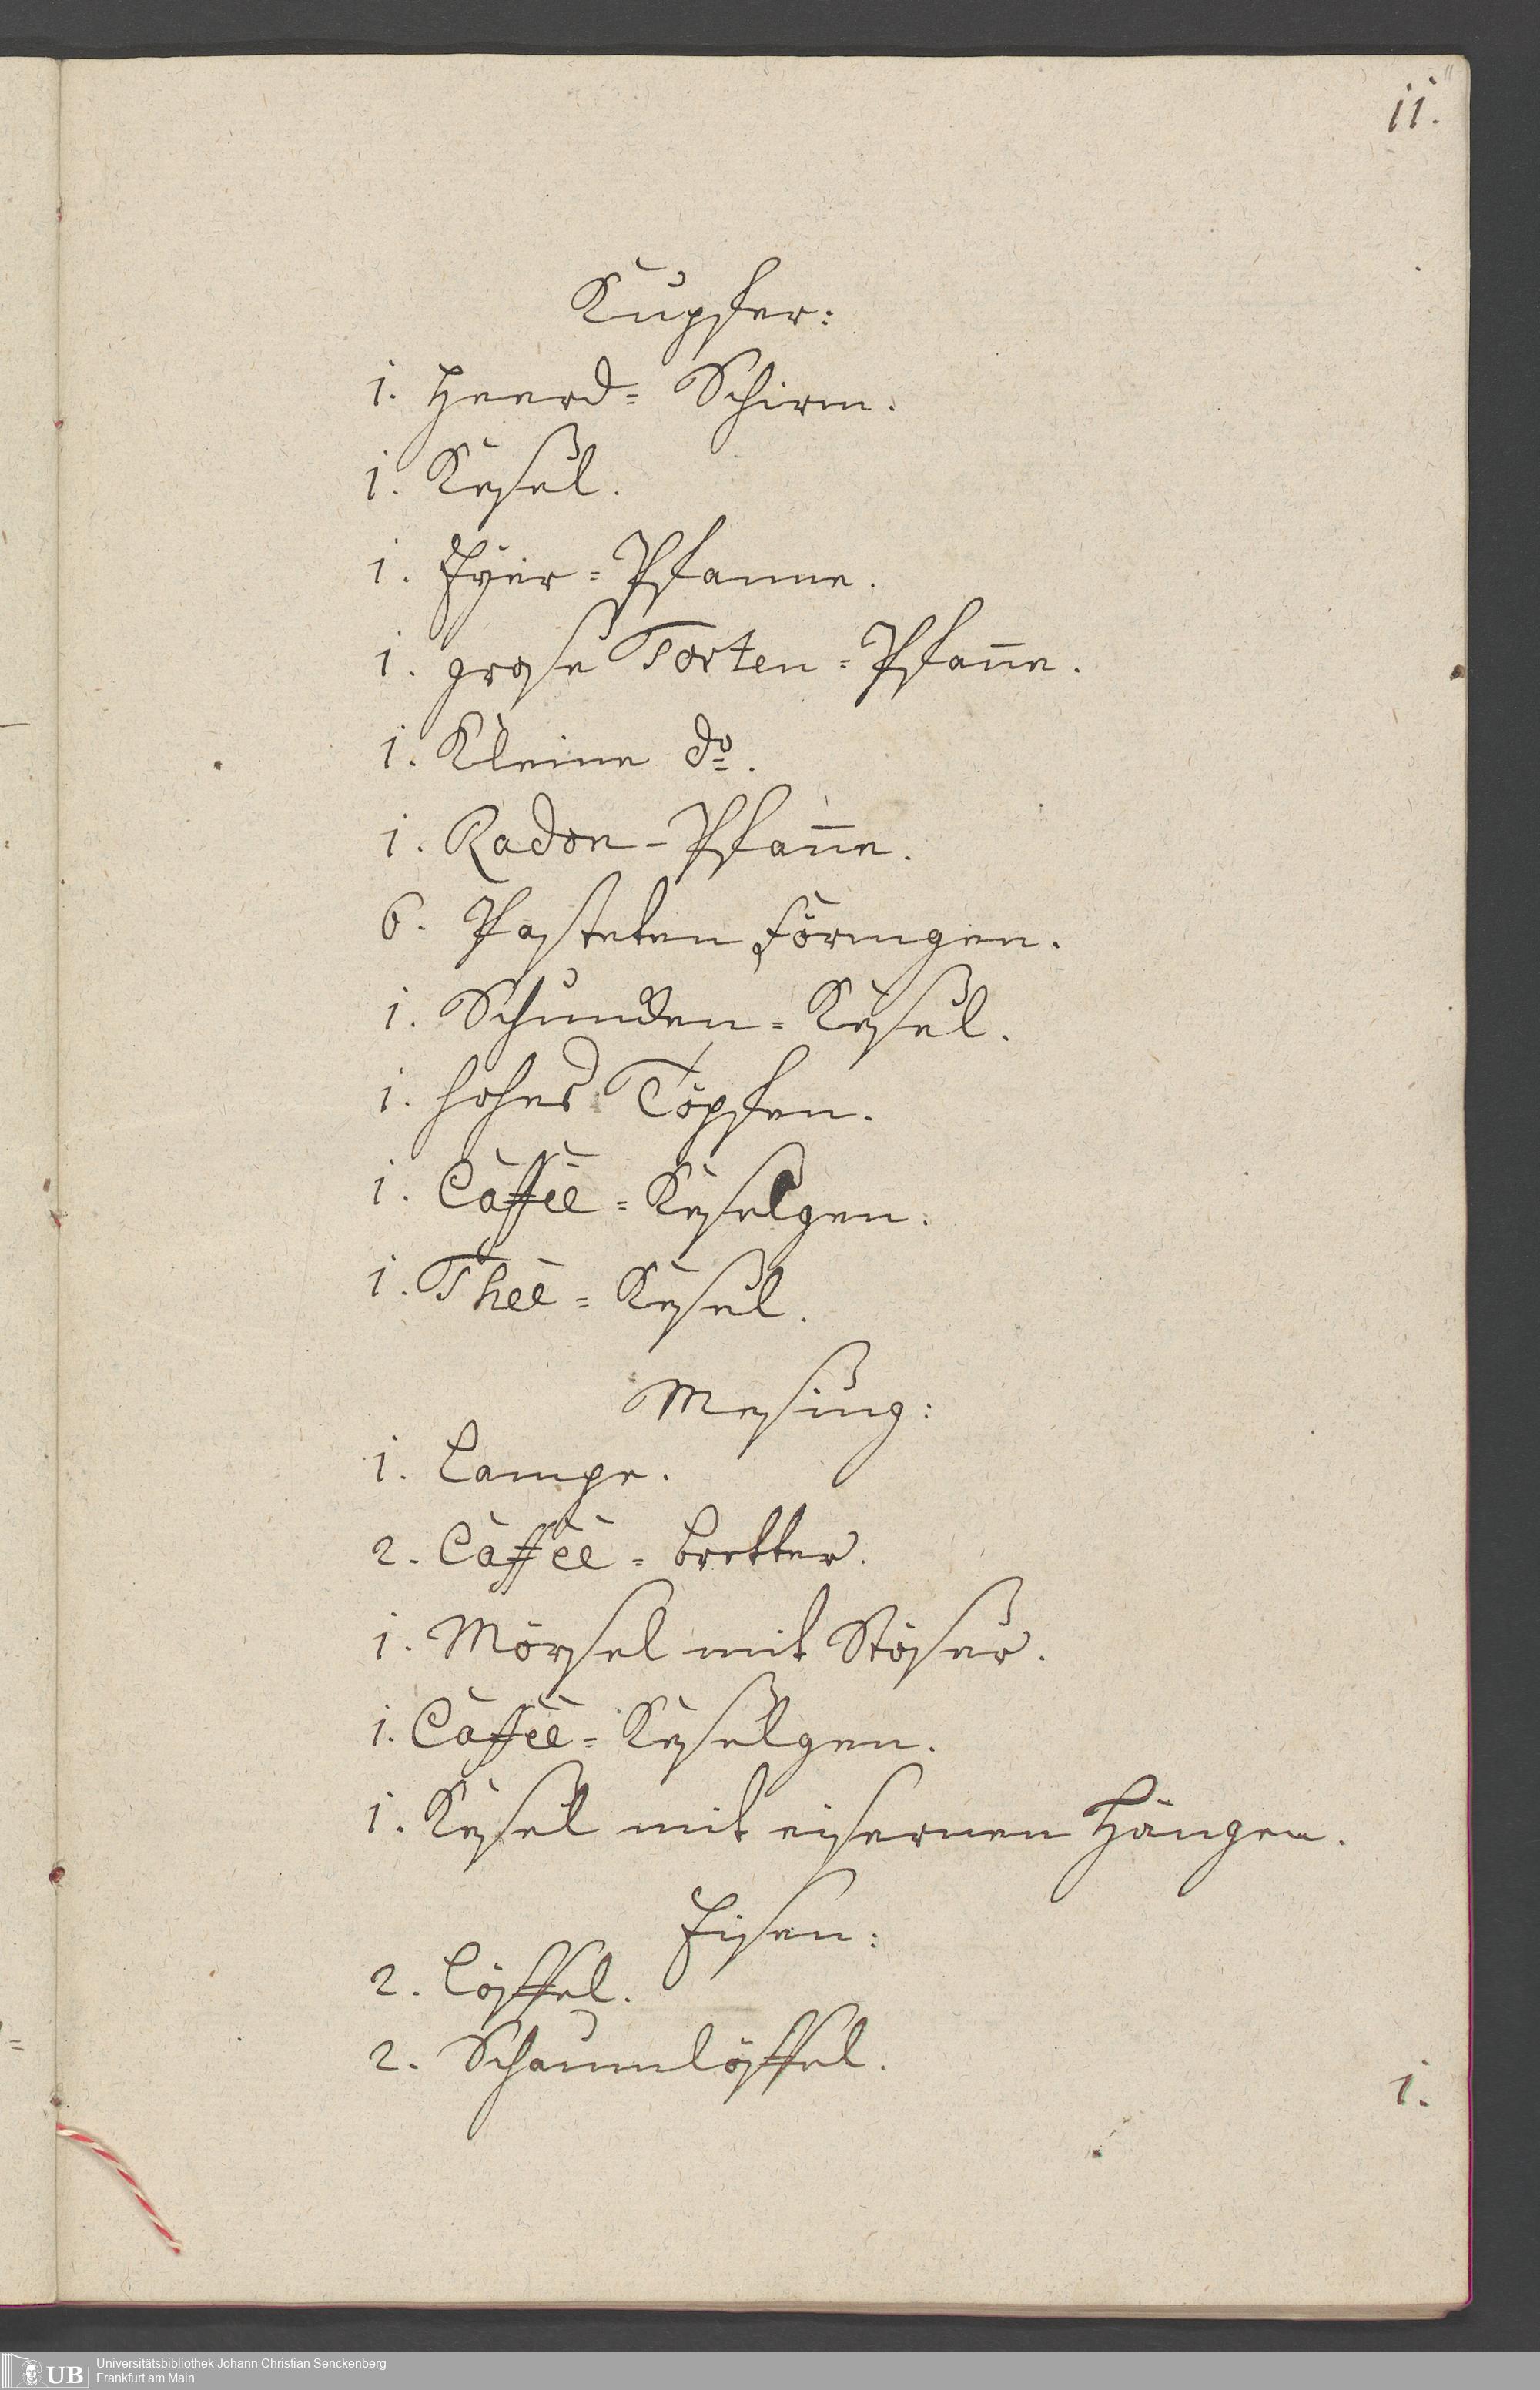 11.
Kupfer:
1. Heerd= Schirm.
1. Keßel.
1. Eÿer=Pfanne.
1. große Torten=Pfañe.
1. Kleine do.
1. Radon-Pfañe.
6. Pasteten Förmgen.
1. Schuncken=Keßel.
1. hohes Töpfen.
1. Caffée=Keßelgen.
1. Thee=Keßel.
Meßing:
1. Lampe.
2. Caffée=Bretter.
1. Mörsel mit Stößer.
1. Caffée=Keßelgen.
1. Keßel mit eisernen Hängen.
Eisen:
2. Löffel.
2. Schaumlöffel.
1.
UB
Universitätsbibliothek Johann Christian Senckenberg
Frankfurt am Main